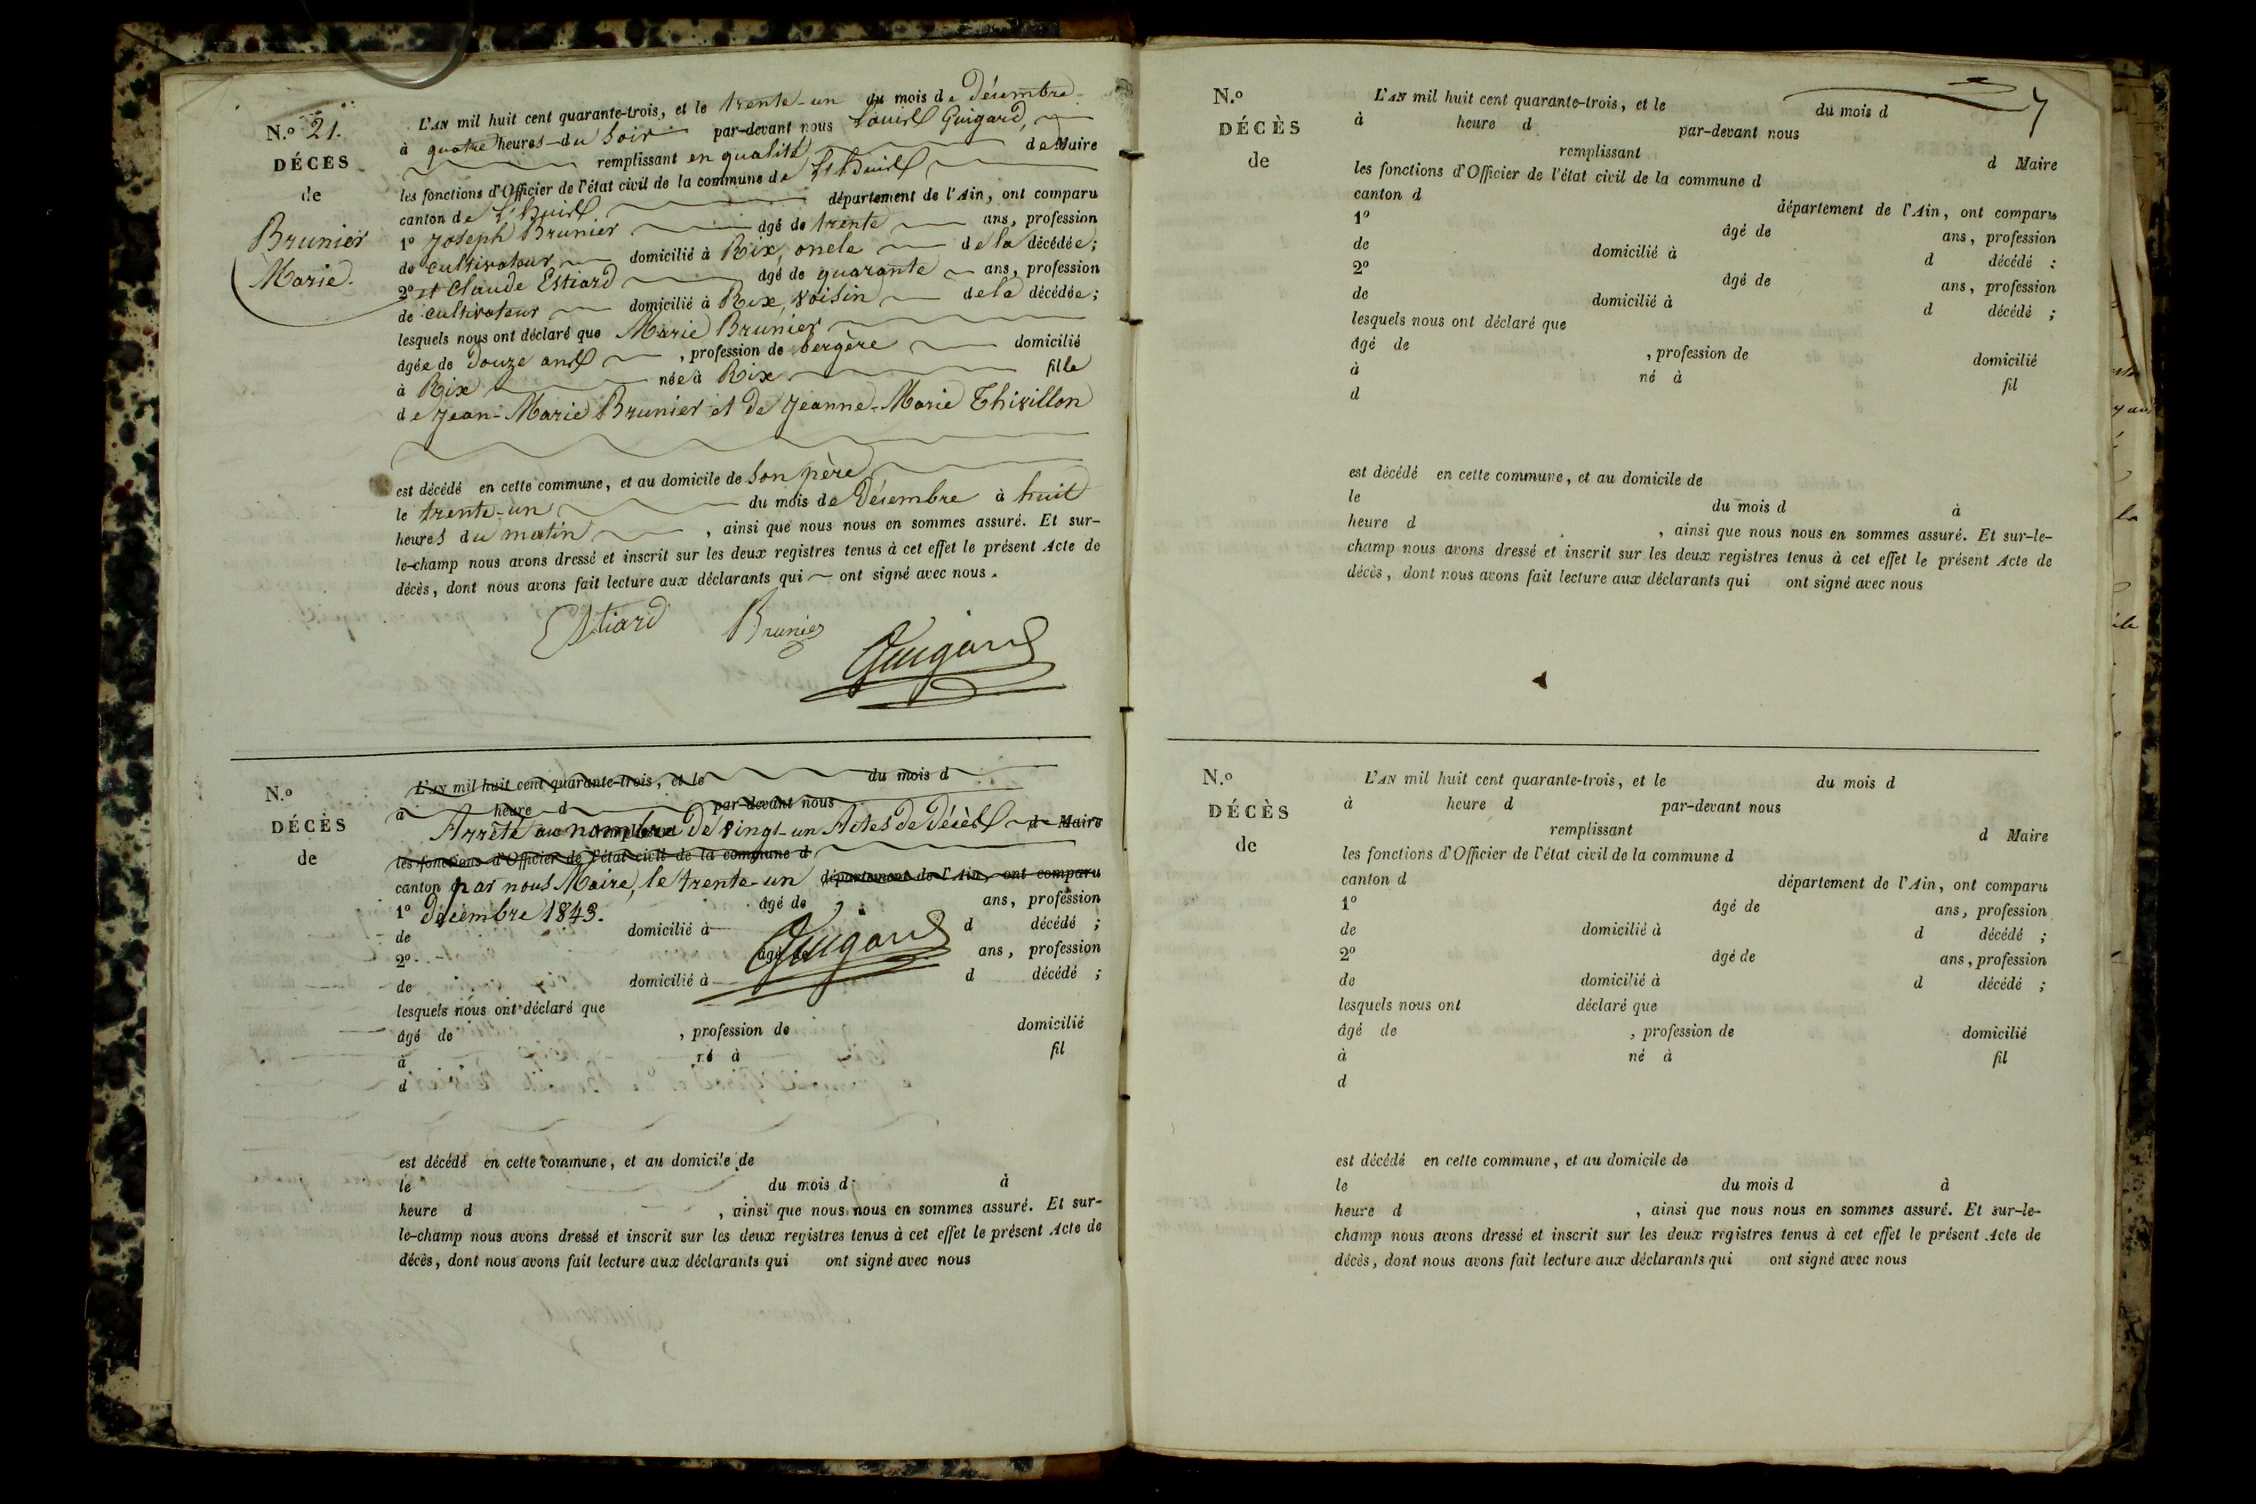 N.º 21.
DÉCÈS
de
Brunier
Marie.
L'AN mil huit cent quarante-trois, et le trente-un du mois de Décembre
à quatre heures du soir par-devant nous Louis Guigard,
remplissant en qualité de Maire
les fonctions d'Officier de l'état civil de la commune de L'huis
canton de L'huis département de l'Ain, ont comparu
1º Joseph Brunier âgé de trente ans, profession
de cultivateur domicilié à Rix, oncle de la décédée;
2º et Claude Estiard âgé de quarante ans, profession
de cultivateur domicilié à Rix, voisin de la décédée;
lesquels nous ont déclaré que Marie Brunier
âgée de douze ans, profession de bergère domicilié
à Rix née à Rix fille
de Jean-Marie Brunier et de Jeanne-Marie Thivillon
est décédé en cette commune, et au domicile de son père
le trente-un du mois de Décembre à huit
heures du matin, ainsi que nous nous en sommes assuré. Et sur-
le-champ nous avons dressé et inscrit sur les deux registres tenus à cet effet le présent Acte de
décès, dont nous avons fait lecture aux déclarants qui ont signé avec nous.
Estiard Brunier
Guigard
N.º
DÉCÈS
de
L'AN mil huit cent quarante-trois, et le du mois d
à heure d par-devant nous
Arrêté au nombre de vingt-un Actes de Décès d Maire
les fonctions d'Officier de l'état civil de la commune d
canton par nous Maire, le trente-un département de l'Ain, ont comparu
1º décembre 1843. âgé de ans, profession
de domicilié à d décédé ;
Guigard
2º âgé de ans, profession
de domicilié à d décédé ;
lesquels nous ont déclaré que
âgé de , profession de domicilié
à né à fil
d
est décédé en cette commune, et au domicile de
le du mois d à
heure d , ainsi que nous nous en sommes assuré. Et sur-
le-champ nous avons dressé et inscrit sur les deux registres tenus à cet effet le présent Acte de
décès, dont nous avons fait lecture aux déclarants qui ont signé avec nous
7
N.º
DÉCÈS
de
L'AN mil huit cent quarante-trois, et le du mois d
à heure d par-devant nous
remplissant d Maire
les fonctions d'Officier de l'état civil de la commune d
canton d département de l'Ain, ont comparu
1º âgé de ans, profession
de domicilié à d décédé :
2º âgé de ans, profession
de domicilié à d décédé ;
lesquels nous ont déclaré que
âgé de , profession de domicilié
à né à fil
d
est décédé en cette commune, et au domicile de
le du mois d à
heure d , ainsi que nous nous en sommes assuré. Et sur-le-
champ nous avons dressé et inscrit sur les deux registres tenus à cet effet le présent Acte de
décès, dont nous avons fait lecture aux déclarants qui ont signé avec nous
N.º
DÉCÈS
de
L'AN mil huit cent quarante-trois, et le du mois d
à heure d par-devant nous
remplissant d Maire
les fonctions d'Officier de l'état civil de la commune d
canton d département de l'Ain, ont comparu
1º âgé de ans, profession
de domicilié à d décédé ;
2º âgé de ans, profession
de domicilié à d décédé ;
lesquels nous ont déclaré que
âgé de , profession de domicilié
à né à fil
d
est décédé en cette commune, et au domicile de
le du mois d à
heure d , ainsi que nous nous en sommes assuré. Et sur-le-
champ nous avons dressé et inscrit sur les deux registres tenus à cet effet le présent Acte de
décès, dont nous avons fait lecture aux déclarants qui ont signé avec nous